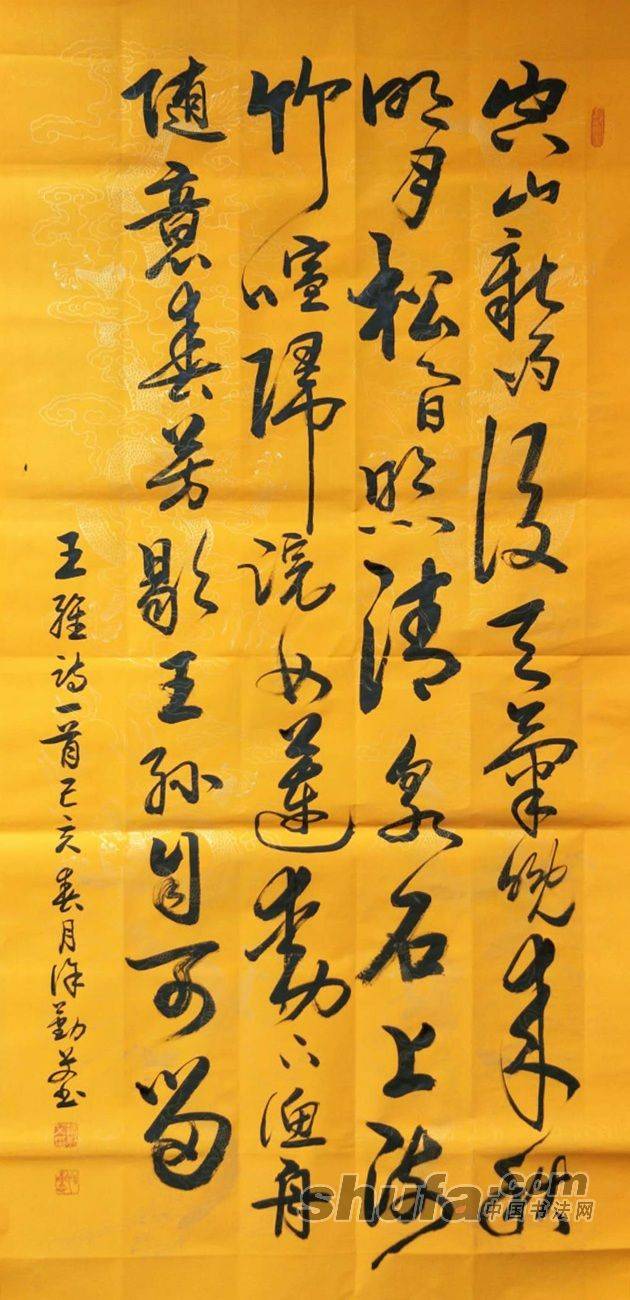 空山新雨後天氣晚來秋
明月松間照清泉石上流
竹喧歸浣女蓮動下漁舟
隨意春芳歇王孫自可留
王維詩一首己亥春月徐勤
shufa.com
中国书法网